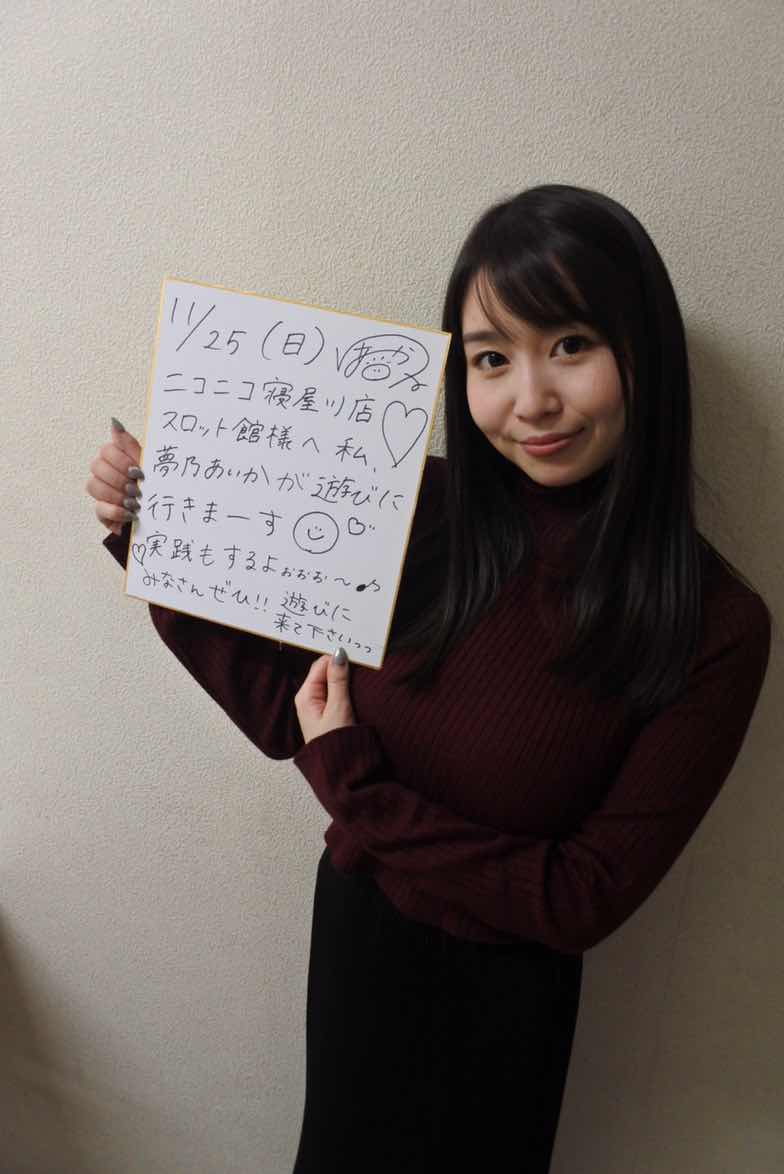 11/25(日)
ニコニコ寝屋川店
スロット館様へ 私、
夢乃あいかが遊びに
行きまーす
実践もするよぉぉぉ〜♪
みなさんぜひ!! 遊びに
来て下さいっっ